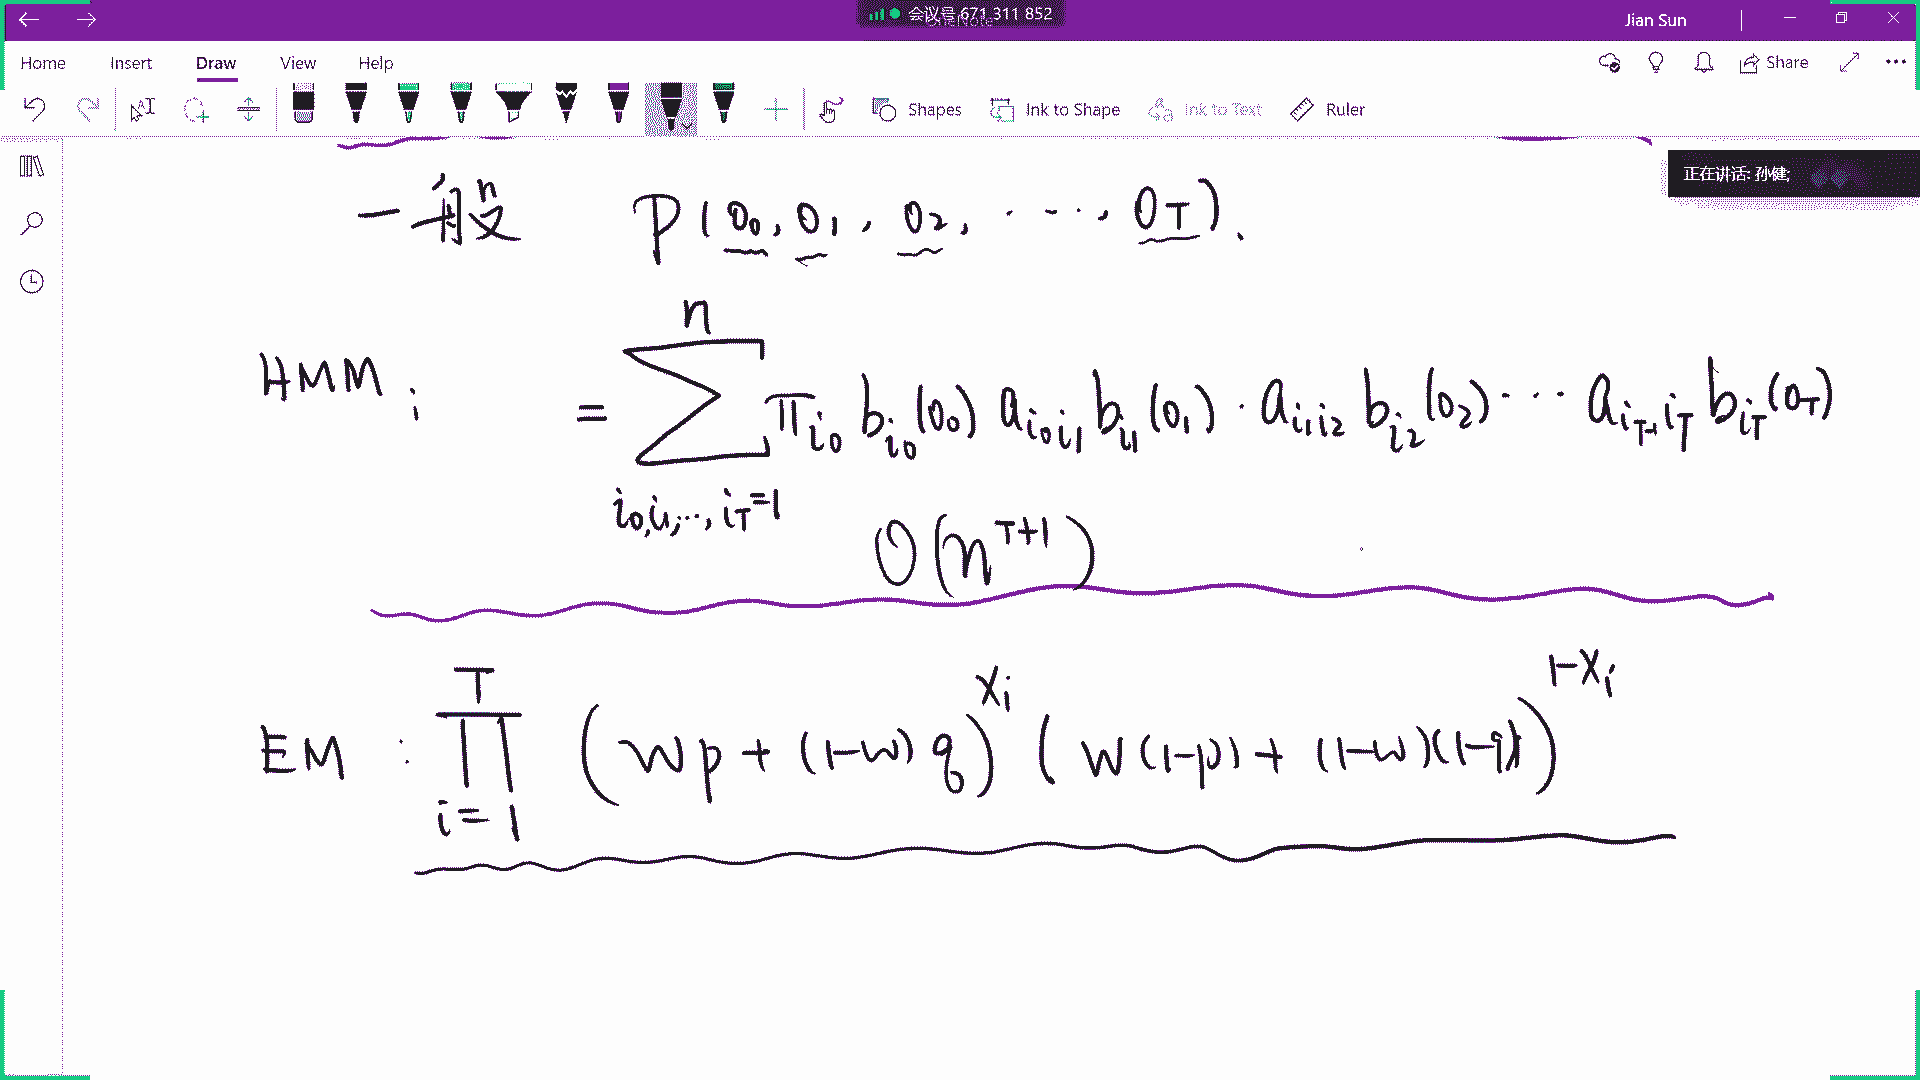 会议号 671 311 852
Jian Sun
Home Insert Draw View Help
Share
Shapes Ink to Shape Ink to Text Ruler
正在讲话: 孙健;
一般 P(O₀, O₁, O₂, ‥‥, O_T).
HMM: = \sum_{i_0,i_1,…,i_T=1}^{n} π_{i_0} b_{i_0}(O_0) a_{i_0 i_1} b_{i_1}(O_1) · a_{i_1 i_2} b_{i_2}(O_2) ··· a_{i_{T-1} i_T} b_{i_T}(O_T)
O(n^{T+1})
EM: \prod_{i=1}^{T} (wp + (1-w)q)^{x_i} (w(1-p) + (1-w)(1-q))^{1-x_i}